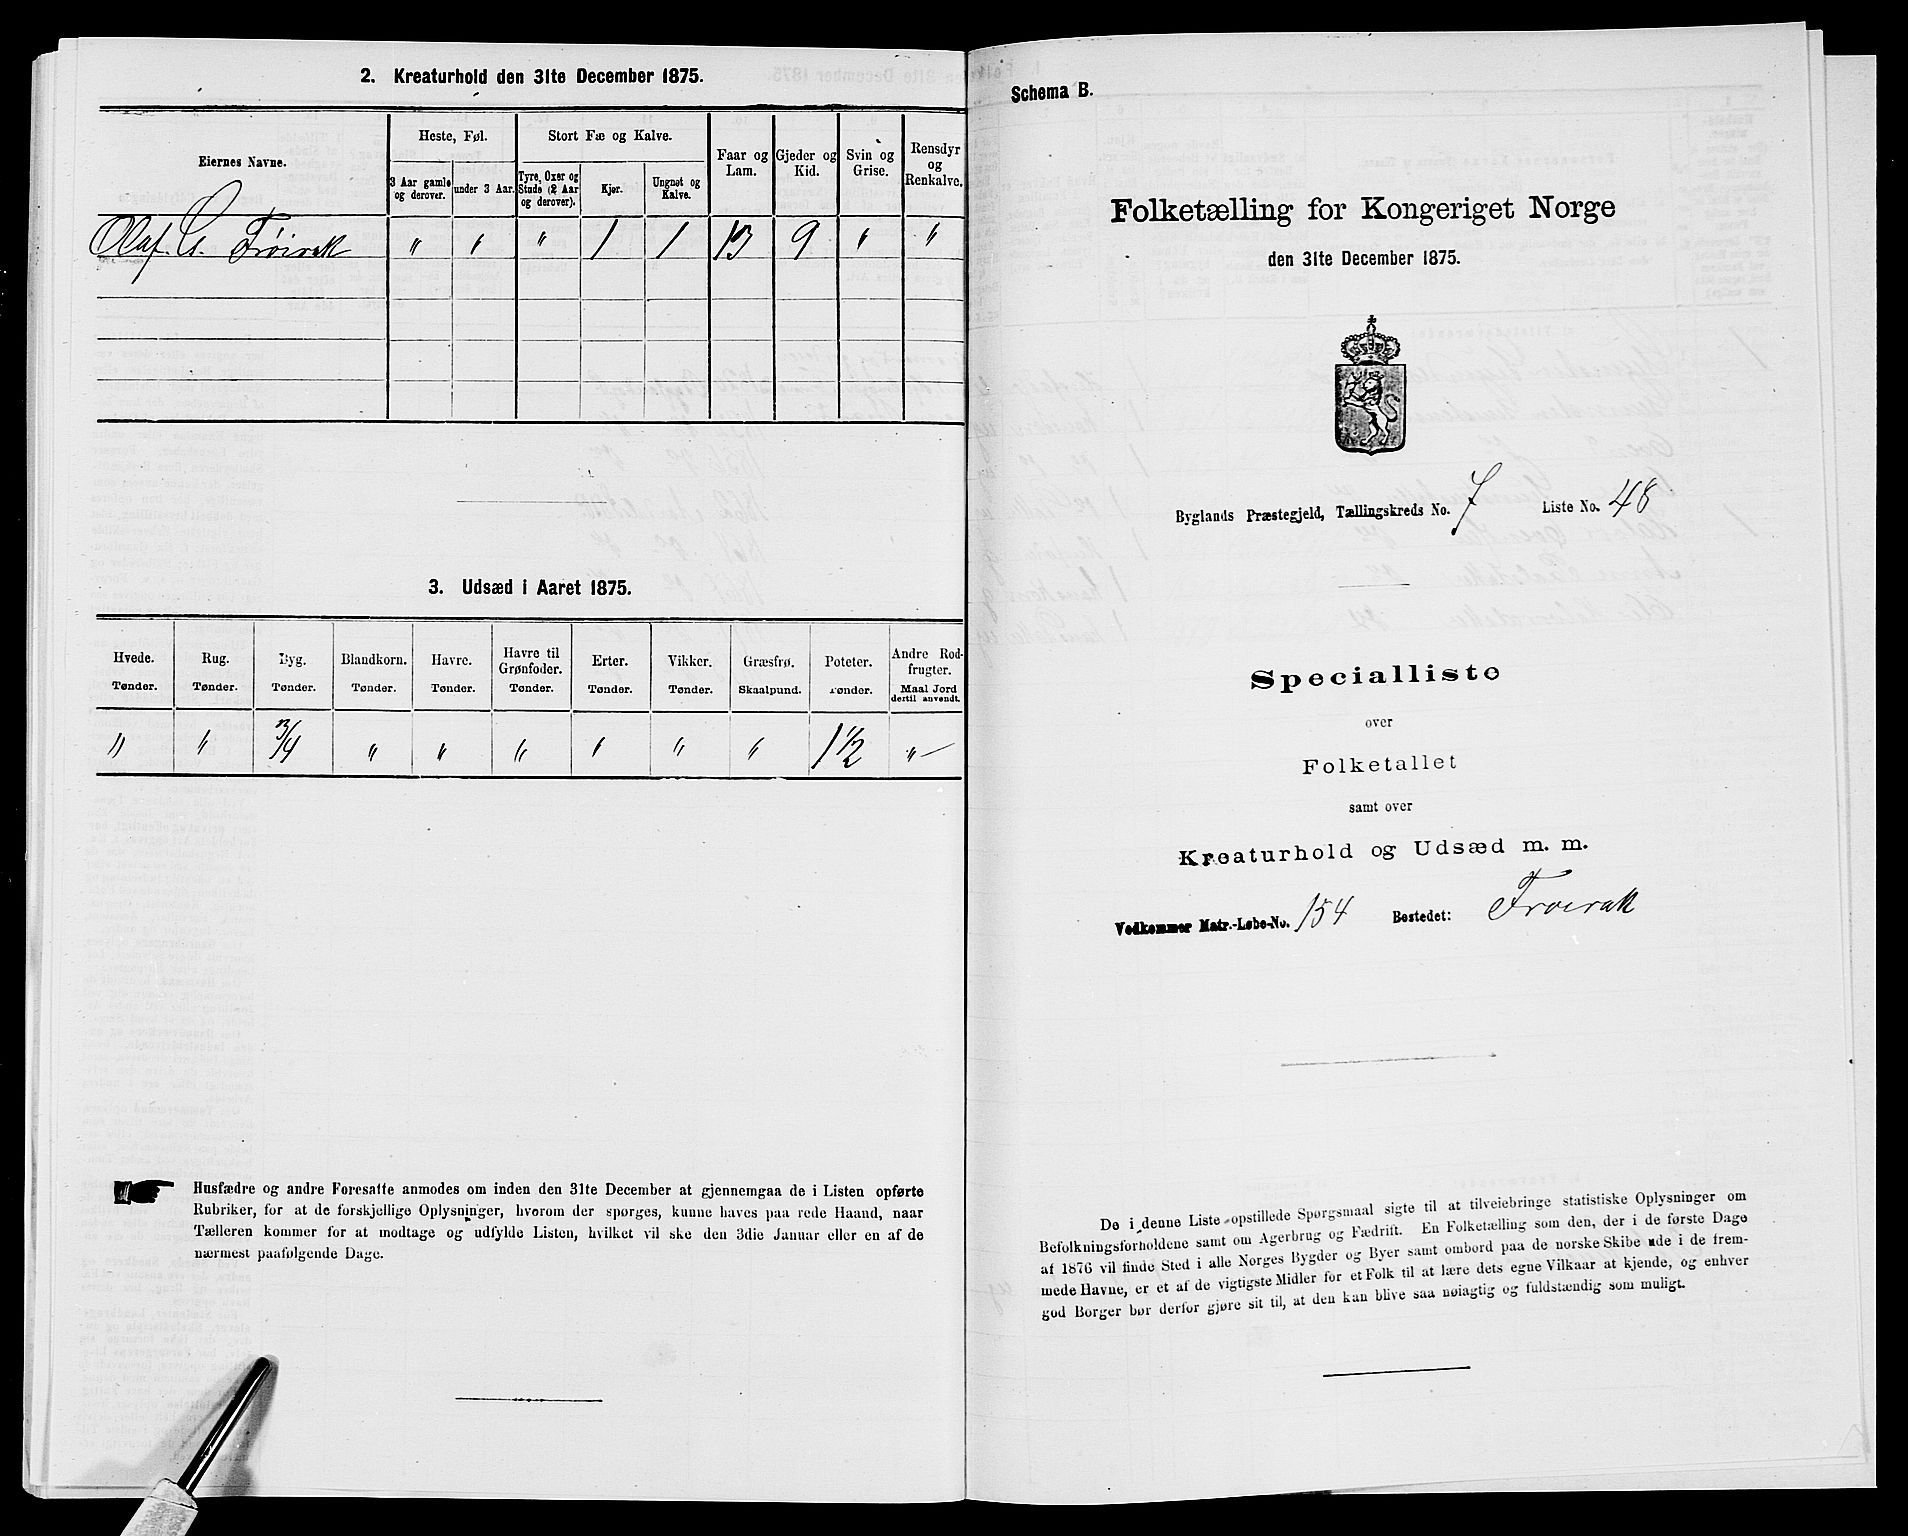 2. Kreaturhold den 31te December 1875.
Eiernes Navne.
Heste, Føl.
Stort Fæ og Kalve.
Faar og Lam.
Gjeder og Kid.
Svin og Grise.
Rensdyr og Renkalve.
3 Aar gamle og derover.
under 3 Aar.
Tyre, Oxer og Stude (2 Aar og derover).
Kjør.
Ungnøt og Kalve.
Olaf. G. Frøirak " " " 1 1 13 9 " "
3. Udsæd i Aaret 1875.
Hvede. Rug. Byg. Blandkorn. Havre. Havre til Grønfoder. Erter. Vikker. Græsfrø. Poteter. Andre Rodfrugter.
Tønder. Tønder. Tønder. Tønder. Tønder. Tønder. Tønder. Tønder. Skaalpund. Tønder. Maal Jord dertil anvendt.
" " 3/4 " " " " " " 1 1/2 " —
Husfædre og andre Foresatte anmodes om inden den 31te December at gjennemgaa de i Listen opførte
Rubriker, for at de forskjellige Oplysninger, hvorom der spørges, kunne haves paa rede Haand, naar
Tælleren kommer for at modtage og udfylde Listen, hvilket vil ske den 3die Januar eller en af de
nærmest paafølgende Dage.
Schema B.
Folketælling for Kongeriget Norge
den 31te December 1875.
Byglands Præstegjeld, Tællingskreds No. 7 Liste No. 48
Specialliste
over
Folketallet
samt over
Kreaturhold og Udsæd m. m.
Vedkommer Matr.-Løbe-No. 154 Bostedet: Froirak
De i denne Liste opstillede Spørgsmaal sigte til at tilveiebringe statistiske Oplysninger om
Befolkningsforholdene samt om Agerbrug og Fædrift. En Folketælling som den, der i de første Dage
af 1876 vil finde Sted i alle Norges Bygder og Byer samt ombord paa de norske Skibe ude i de frem-
mede Havne, er et af de vigtigste Midler for et Folk til at lære dets egne Vilkaar at kjende, og enhver
god Borger bør derfor gjøre sit til, at den kan blive saa nøiagtig og fuldstændig som muligt.